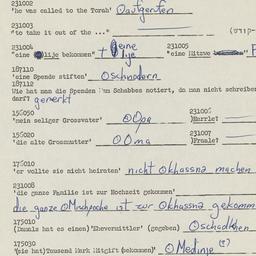 231002
'he was called to the Torah' Oaufgerufen
231003
"to take it out of the ..."
231004 eine 231005
"eine lije bekommen" + lje "eine Mitzve
187110
'eine Spende stiften' Oschnodern
187112
Wie hat man die Spenden am Schabbes notiert, da man nicht schreiben
darf? gemerkt
156050 231006
'mein seliger Grossvater' OOpa )Herrle?
156020 231007
'die alte Grossmutter' OOma )Fraale?
175010
'er wollte sie nicht heiraten' nicht Okhassna machen
231008
'die ganze Familie ist zur Hochzeit gekommen'
die ganze OMischpoche ist zur Okhassna gekomm
175010
(Damals hat es einen) 'Ehevermittler' (gegeben) Oschadkhen
175030
'(sie hat) Tausend Mark Mitgift (bekommen)' OMedinje (?)